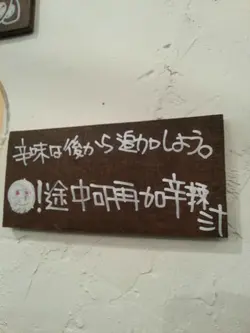 辛味は後から追加しよう。
!途中可再加辛辣
汁